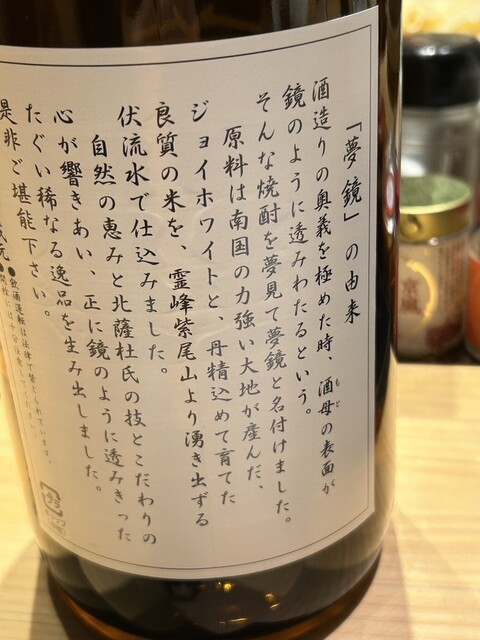 「夢鏡」の由来
酒造りの奥義を極めた時、酒母の表面が
もと
鏡のように透みわたるという。
そんな焼酎を夢見て夢鏡と名付けました。
原料は南国の力強い大地が産んだ、
ジョイホワイトと、丹精込めて育てた
良質の米を、霊峰紫尾山より湧き出ずる
伏流水で仕込みました。
自然の恵みと北薩杜氏の技とこだわりの
心が響きあい、正に鏡のように透みきった
たぐい稀なる逸品を生み出しました。
是非ご堪能下さい。
●飲酒運転は法律で禁じられています。